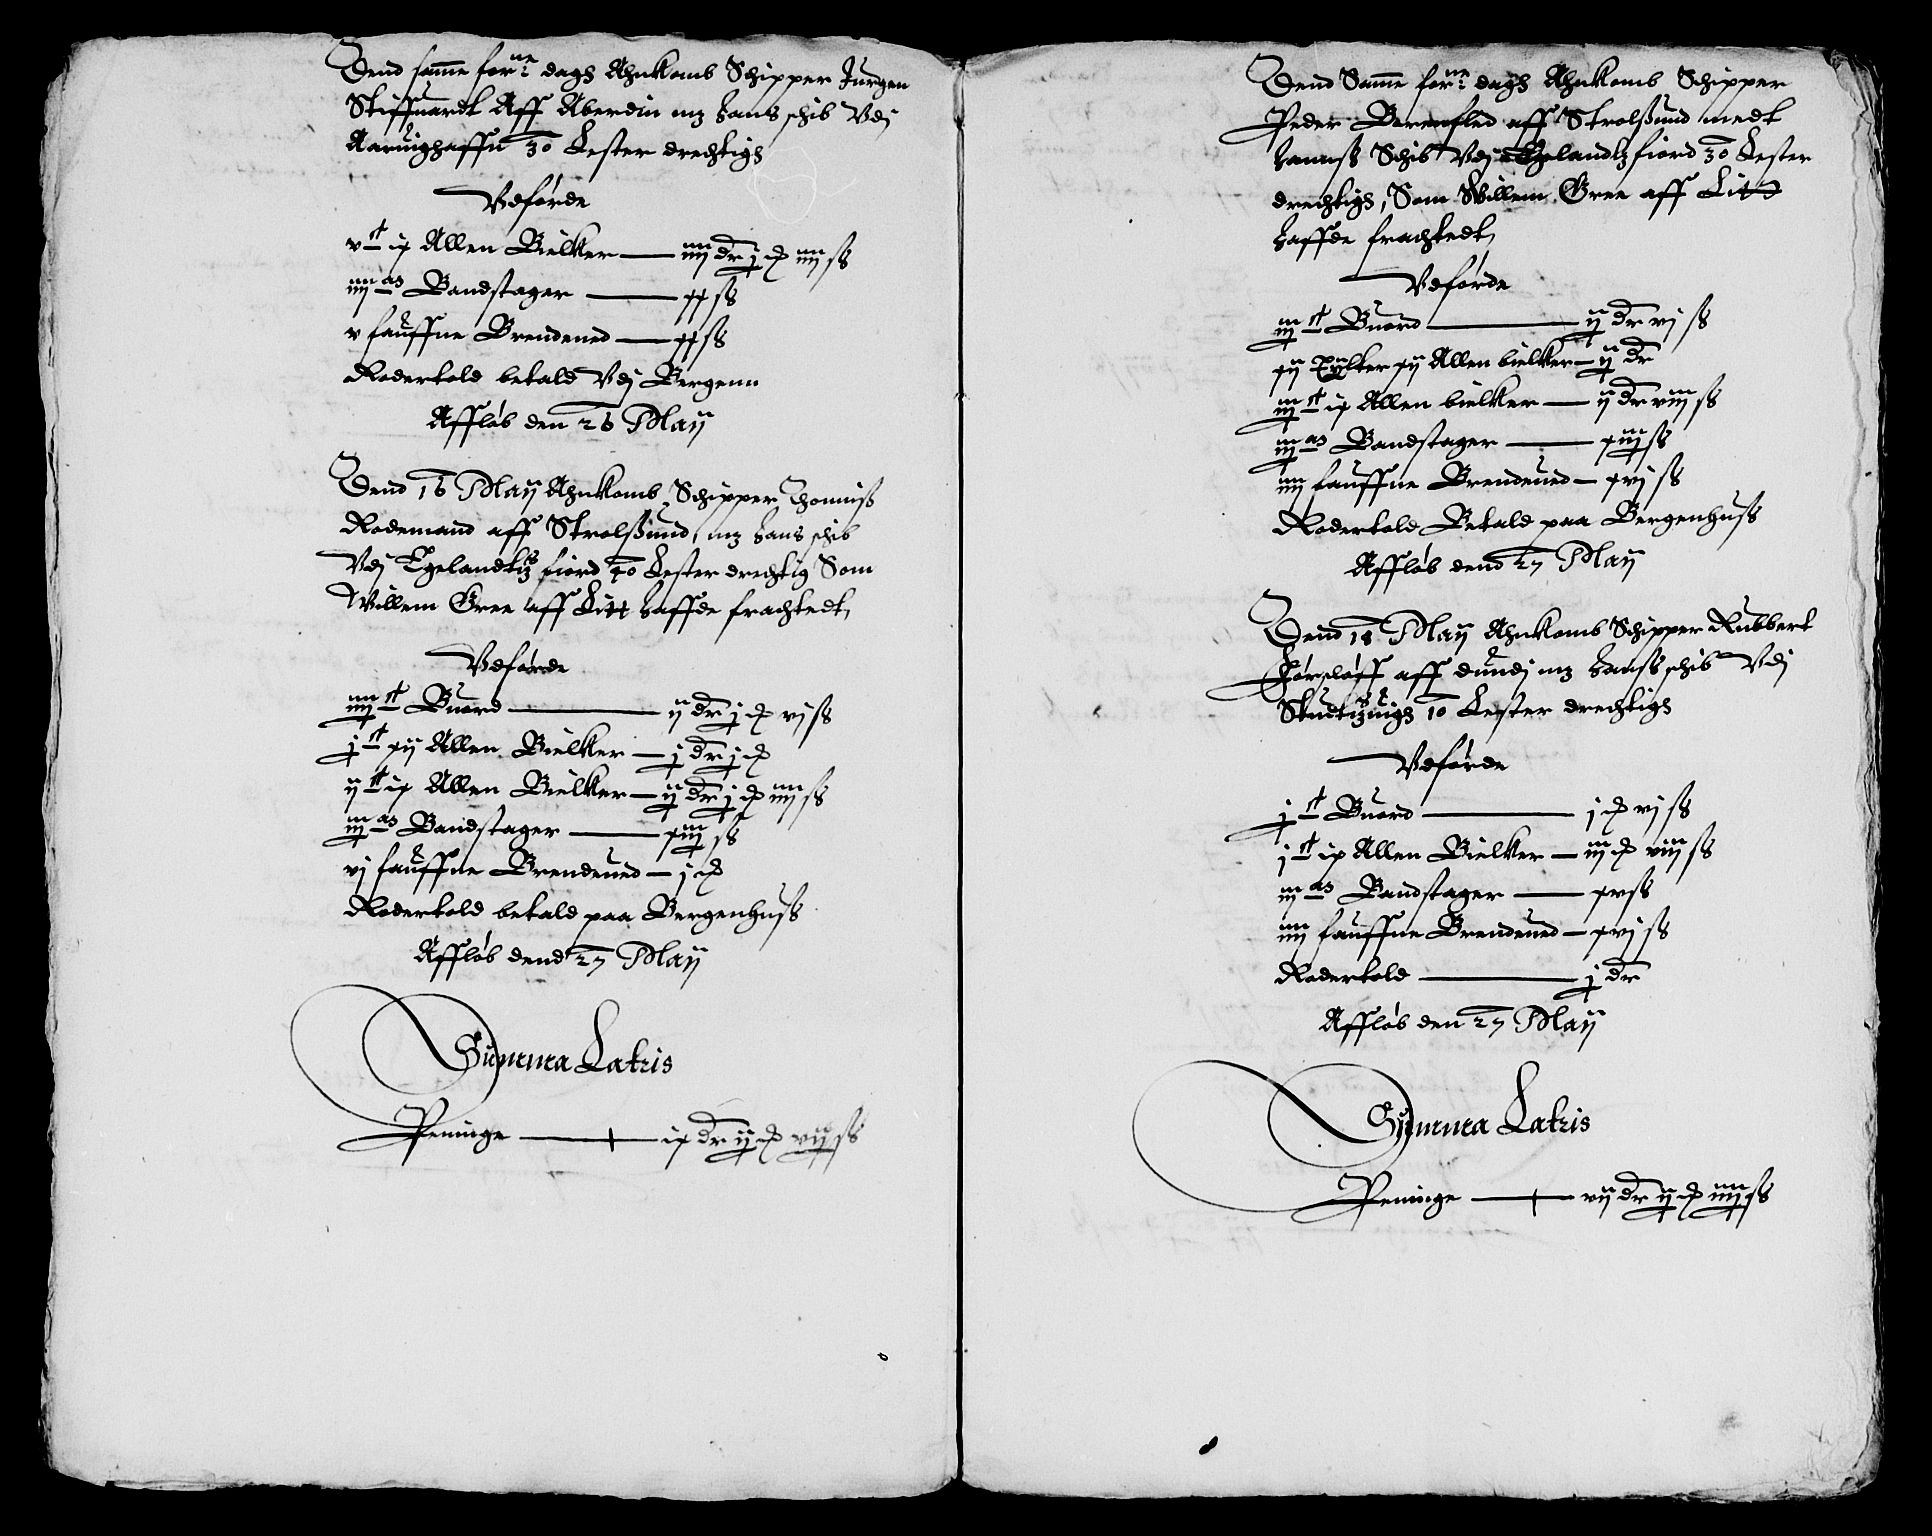 Dend samme forne dags Ahnkomb Schipper Jurgen
Stiffuardt Aff Aberdin mz hans schib Vdj
Aaruighaffn 30 Lester drechtigh
Vdförde
v ct ix Allen Bielker — iiij dr j ₰ iiij ſs
iiij as Bandstager — xx ſs
v fauffne Brendeued — xx ſs
Rodertold betald Vdj Bergenn
Afflöb den 26 Maij
Dend 16 Maij Ahnkomb Schipper Thomiss
Rodemand aff Strolssund, mz hans schib
Vdj Egelandtz fiord 40 Lester drechtig Som
Willem Gree aff Litt haffde frachtedt,
Vdförde
iiij ct Buord — ij dr j ₰ vj ſs
j ct xij Allen Bielker — j dr j ₰
ij ct ix Allen Bielker — ij dr j ₰ iiij ſs
iij as Bandstager — xiij ſs
vj fauffne Brendeued — j ₰
Rodertold betald paa Bergenhuss
Afflöb dend 27 Maij
Summa Latris
Peninge — ix dr ij ₰ vij ſs
Dend Samme forne dags Ahnkomb Schipper
Peder Berenfled aff Strolssund medt
hanss Schib Vdj Egelandtz fiord 30 Lester
drechtigh, Som Willem Gree aff Litt
haffde frachtedt,
Vdförde
iij ct Buord — ij dr vj ſs
xij Tylter xij Allen bielker — ij dr
iij ct ix Allen bielker — ij dr viij ſs
iij as Bandstager — xiij ſs
iiij fauffne Brendeued — xvj ſs
Rodertold Betald paa Bergenhuss
Afflöb dend 27 Maij
Dend 18 Maij Ahnkomb Schipper Rubbert
aff dundj mz hanss schib Vdj
10 Lester drechtigh
Vdförde
j ct Buord — j ₰ vj ſs
j ct ix Allen Bielker — iij ₰ viij ſs
iij as Bandstager — xv ſs
iiij fauffne Brendeued — xvj ſs
Rodertold — j dr
Afflöb den 27 Maij
Summa Latris
Peninge — vij dr ij ₰ iiij ſs